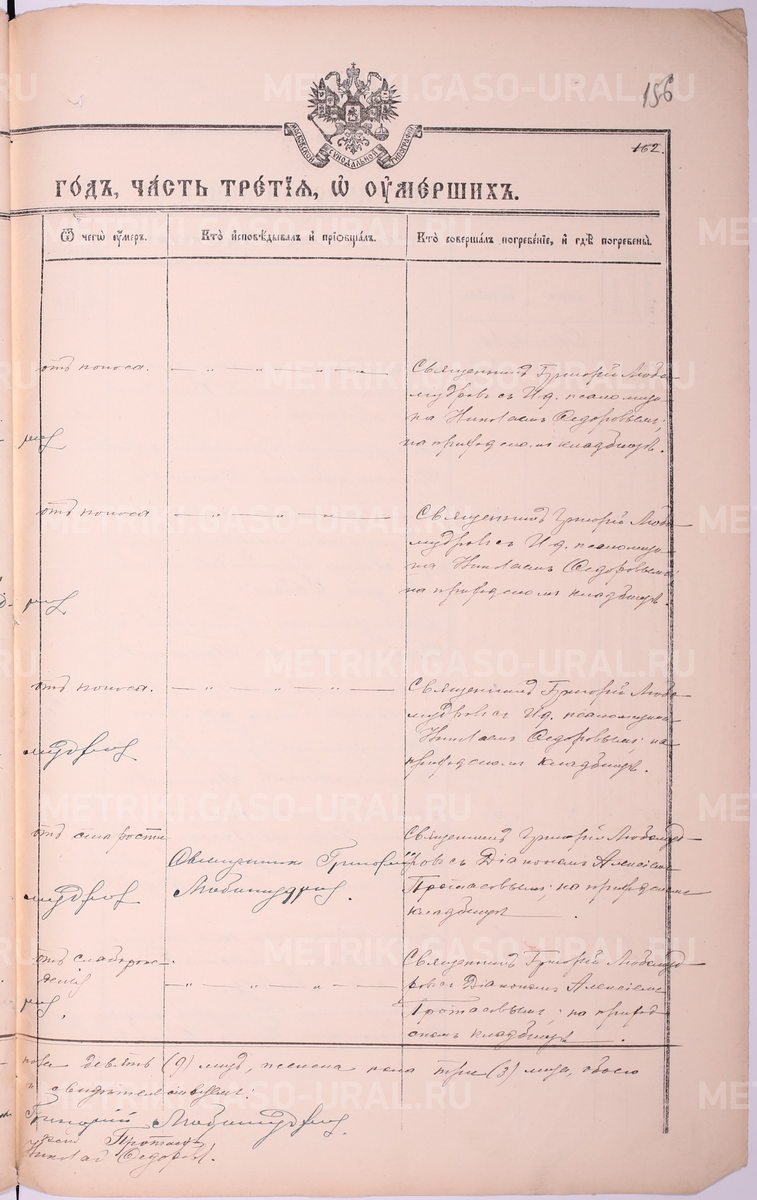 156
МОСКОВСКОЙ СѴНОДАЛЬНОЙ ТИПОГРАФІИ
162.
годъ, часть третїѧ, ѡ оумершихъ.
Ѿ чегѡ оумеръ.
Кто исповѣдывалъ и прїобщалъ.
Кто совершалъ погребенїе, и гдѣ погребены.
отъ поноса.
— „ — „ — „ — „ —
Священникъ Григорій Любо-
мудровъ съ И. д. псаломщи-
ка Николаемъ Ѳедоровымъ;
на приходскомъ кладбищѣ.
отъ поноса
— „ — „ — „ — „ —
Священникъ Григорій Любо-
мудровъ съ И. д. псаломщи-
ка Николаемъ Ѳедоровымъ;
на приходскомъ кладбищѣ.
отъ поноса.
— „ — „ — „ —
Священникъ Григорій Любо-
мудровъ съ И. д. псаломщика
Николаемъ Ѳедоровымъ; на
приходскомъ кладбищѣ.
мудровъ
отъ старости
Священникъ Григорій
Любомудровъ.
Священникъ Григорій Любомуд-
ровъ съ Діакономъ Алексіемъ
Протасовымъ; на приходскомъ
кладбищѣ.
мудровъ
отъ слаборож-
денія
— „ — „ — „ —
Священникъ Григорій Любомуд-
ровъ съ Діакономъ Алексіемъ
Протасовымъ; на приход-
скомъ кладбищѣ.
пола девять (9) лицъ, женска пола три (3) лица, обоего
свидѣтельствуемъ:
Григорій Любомудровъ.
Протасовъ
Николай Ѳедоровъ.
METRIKI.GASO-URAL.RU